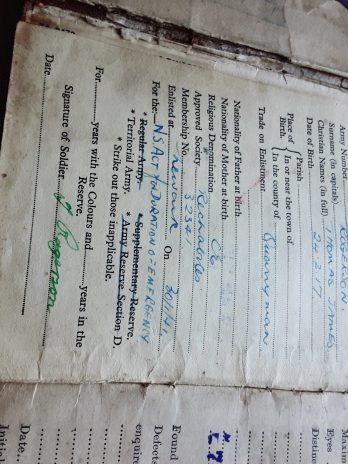 Army Number
Surname (in capitals) ROGERSON.
Christian Names (in full) THOMAS JAMES
Date of Birth 24.2.17
Place of Birth.
Parish
In or near the town of
In the county of
Trade on Enlistment Quarryman
Nationality of Father at birth
Nationality of Mother at birth
Religious Denomination CE
Approved Society Rechabites
Membership No. 32541
Enlisted at On
For the:— N.S. ACT DURATION OF EMERGENCY
* Regular Army. * Supplementary Reserve.
* Territorial Army. * Army Reserve Section D.
* Strike out those inapplicable.
For years with the Colours and years in the
Reserve.
Signature of Soldier Rogerson
Date
Eyes
Found
Defects
Date